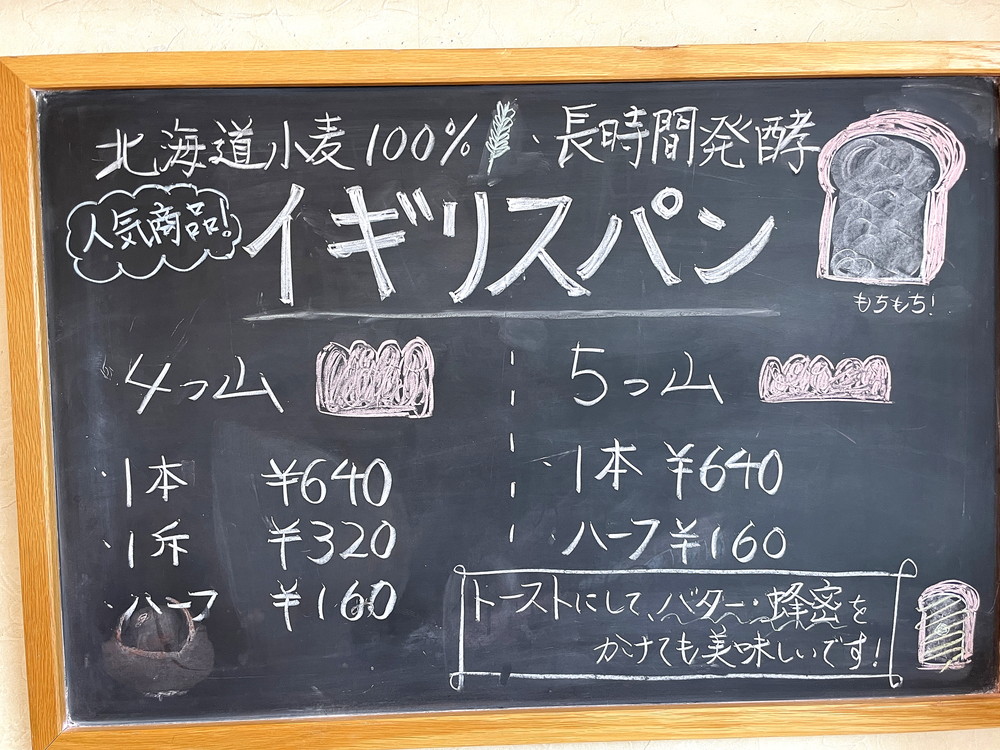 北海道小麦100% 、長時間発酵
人気商品!
イギリスパン
もちもち!
4つ山
・1本 ¥640
・1斤 ¥320
・ハーフ ¥160
5つ山
・1本 ¥640
・ハーフ ¥160
トーストにして、バター・蜂蜜を
かけても美味しいです!